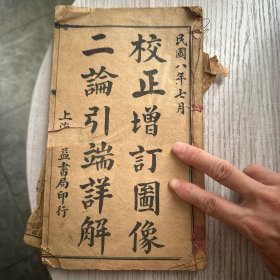 民國八年七月
校正增訂圖像
二論引端詳解
上海 益書局印行